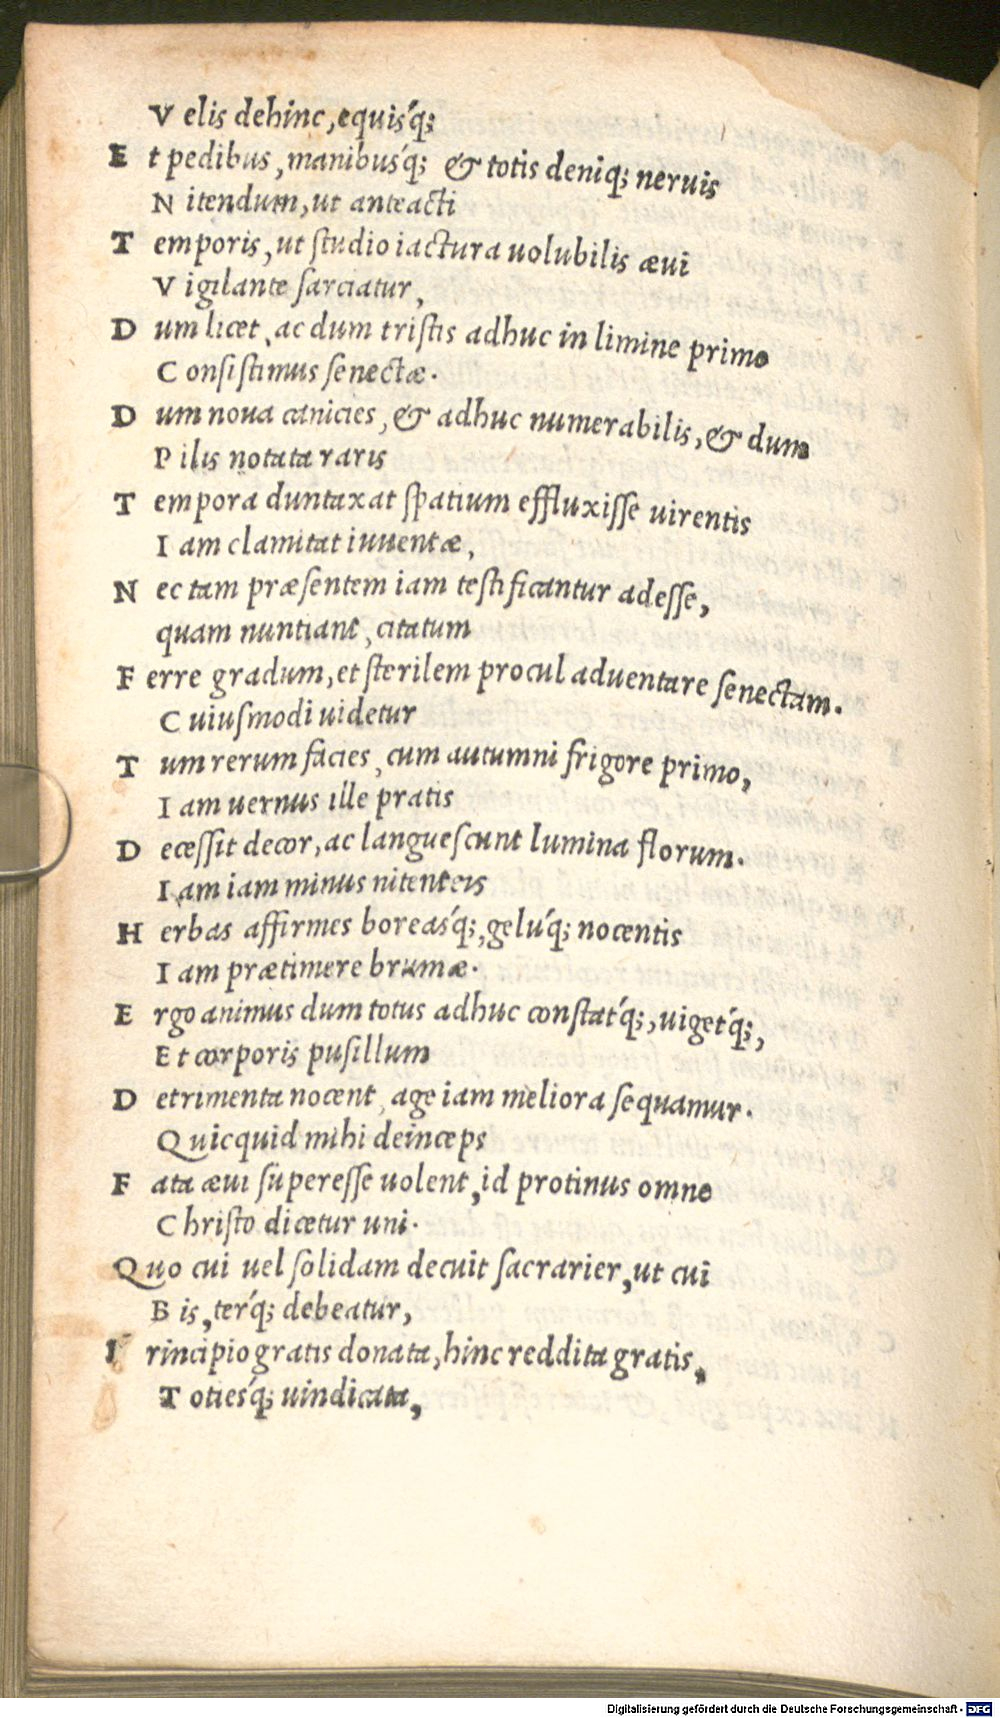 V elis dehinc, equisq́;
E t pedibus, manibusq́; & totis deniq; neruis
N itendum, ut anteacti
T emporis, ut studio iactura uolubilis æui
V igilante sarciatur,
D um licet, ac dum tristis adhuc in limine primo
C onsistimus senectæ.
D um noua canicies, & adhuc numerabilis, & dum
P ilis notata raris
T empora duntaxat spatium effluxisse uirentis
I am clamitat iuuentæ,
N ec tam præsentem iam testificantur adesse,
quam nuntiant, citatum
F erre gradum, et sterilem procul aduentare senectam.
C uiusmodi uidetur
T um rerum facies, cum autumni frigore primo,
I am uernus ille pratis
D ecessit decor, ac languescunt lumina florum.
I am iam minus nitenteis
H erbas affirmes boreasq́;, geluq́; nocentis
I am prætimere brumæ.
E rgo animus dum totus adhuc constatq́;, uigetq́;,
E t corporis pusillum
D etrimenta nocent, age iam meliora sequamur.
Q uicquid mihi deinceps
F ata æui superesse uolent, id protinus omne
C hristo dicetur uni.
Q uo cui uel solidam decuit sacrarier, ut cui
B is, terq́; debeatur,
P rincipio gratis donata, hinc reddita gratis,
T otiesq́; uindicata,
Digitalisierung gefördert durch die Deutsche Forschungsgemeinschaft - DFG